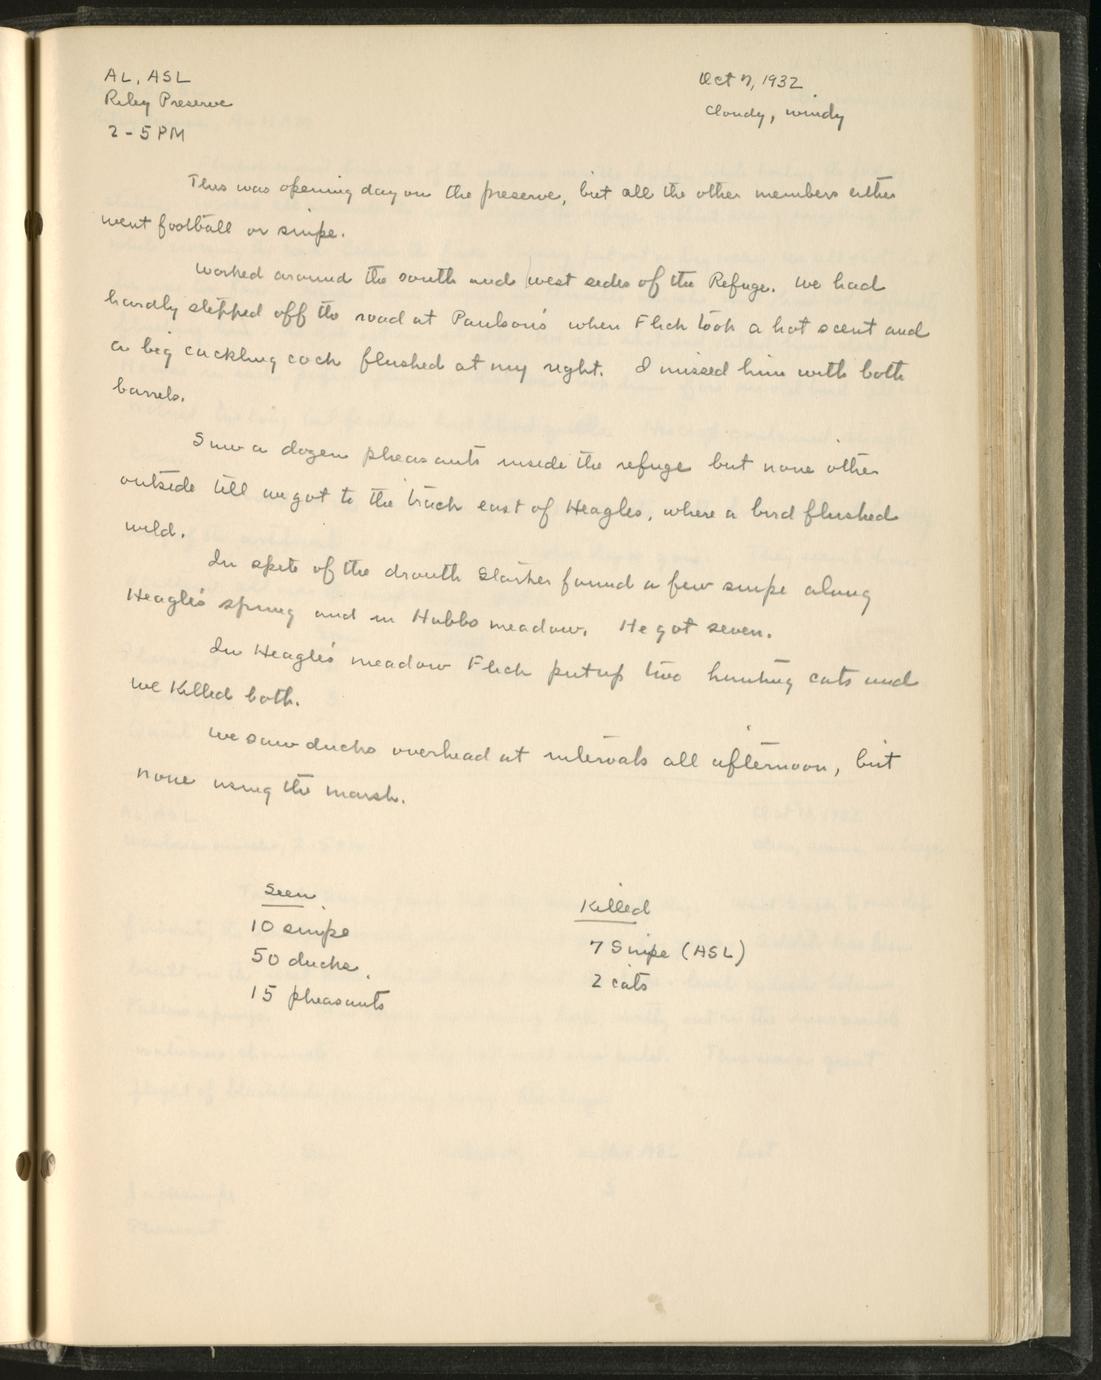 AL, ASL
Riley Preserve
2 - 5 PM
Oct 7, 1932
Cloudy, windy
This was opening day on the preserve, but all the other members either
went football or snipe.
Worked around the south and west sides of the Refuge. We had
hardly stepped off the road at Paulson's when Flick took a hot scent and
a big cackling cock flushed at my right. I missed him with both
barrels.
Saw a dozen pheasants inside the refuge but none other
outside till we got to the track east of Heagles, where a bird flushed
wild.
In spite of the drouth Starker found a few snipe along
Heagle's spring and in Hubbs meadow. He got seven.
In Heagle's meadow Flick put up two hunting cats and
we killed both.
We saw ducks overhead at intervals all afternoon, but
none using the marsh.
Seen
10 snipe
50 ducks
15 pheasants
Killed
7 Snipe (ASL)
2 cats